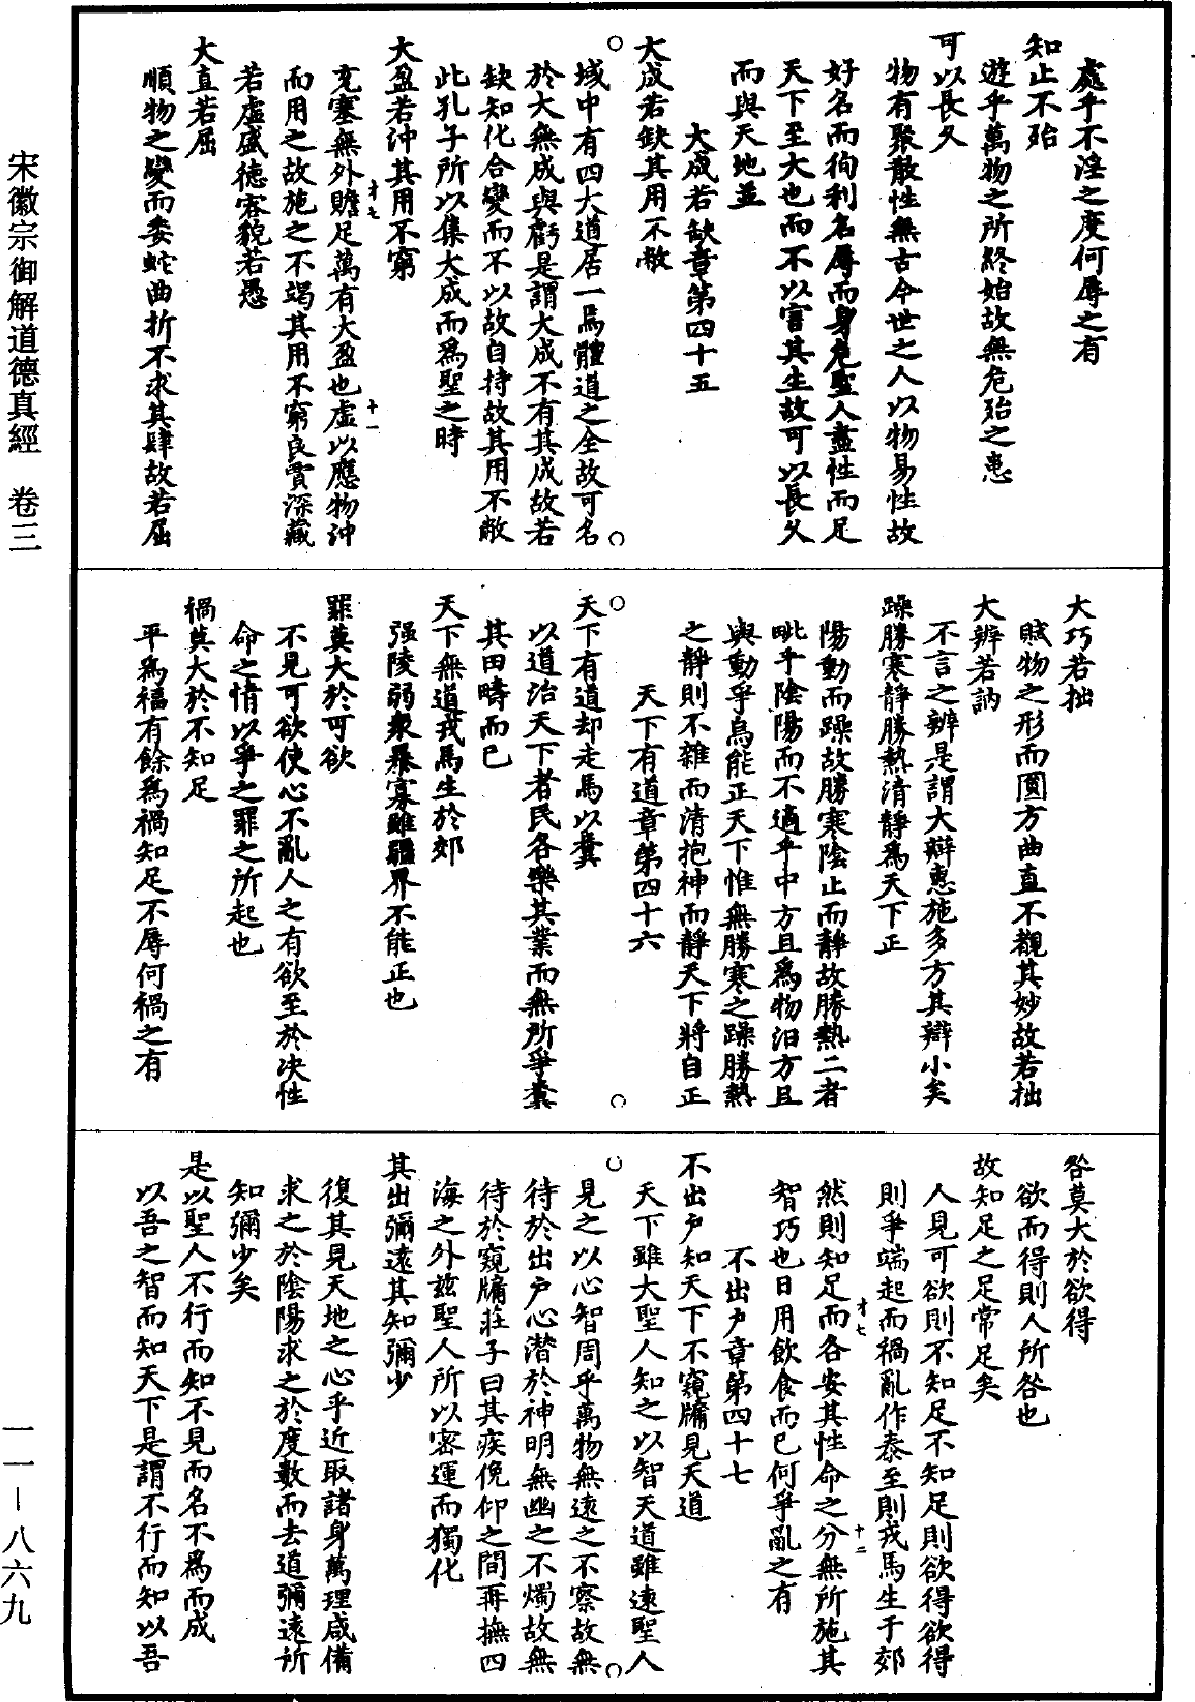 處乎不淫之度何辱之有
知止不殆
遊乎萬物之所終始故無危殆之患
可以長久
物有聚散性無古今世之人以物易性故
好名而徇利名辱而身危聖人盡性而足
天下至大也而不以害其生故可以長久
而與天地並
大成若缺章第四十五
大成若缺其用不敝
域中有四大道居一焉體道之全故可名
於大無成與虧是謂大成不有其成故若
缺知化合變而不以故自持故其用不敝
此孔子所以集大成而爲聖之時
大盈若沖其用不窮
充塞無外贍足萬有大盈也虛以應物沖
而用之故施之不竭其用不窮良賈深藏
若虛盛德容貌若愚
大直若屈
順物之變而委蛇曲折不求其肆故若屈
才七
十一
大巧若拙
賦物之形而圓方曲直不覩其妙故若拙
大辨若訥
不言之辨是謂大辯惠施多方其辯小矣
躁勝寒靜勝熱清靜爲天下正
陽動而躁故勝寒陰止而靜故勝熱二者
毗乎陰陽而不適乎中方且爲物汩方且
與動乎烏能正天下惟無勝寒之躁勝熱
之靜則不雜而清抱神而靜天下將自正
天下有道章第四十六
天下有道却走馬以糞
以道治天下者民各樂其業而無所爭糞
其田疇而已
天下無道戎馬生於郊
强陵弱衆暴寡雖疆界不能正也
罪莫大於可欲
不見可欲使心不亂人之有欲至於決性
命之情以爭之罪之所起也
禍莫大於不知足
平爲福有餘爲禍知足不辱何禍之有
咎莫大於欲得
欲而得則人所咎也
故知足之足常足矣
人見可欲則不知足不知足則欲得欲得
則爭端起而禍亂作泰至則戎馬生于郊
然則知足而各安其性命之分無所施其
智巧也日用飲食而已何爭亂之有
才七
十二
不出戶章第四十七
不出戶知天下不窺牖見天道
天下雖大聖人知之以智天道雖遠聖人
見之以心智周乎萬物無遠之不察故無
待於出戶心潛於神明無幽之不燭故無
待於窺牖莊子曰其疾俛仰之間再撫四
海之外玆聖人所以密運而獨化
其出彌遠其知彌少
復其見天地之心乎近取諸身萬理咸備
求之於陰陽求之於度數而去道彌遠所
知彌少矣
是以聖人不行而知不見而名不爲而成
以吾之智而知天下是謂不行而知以吾
宋徽宗御解道德真經 卷三
一一—八六九